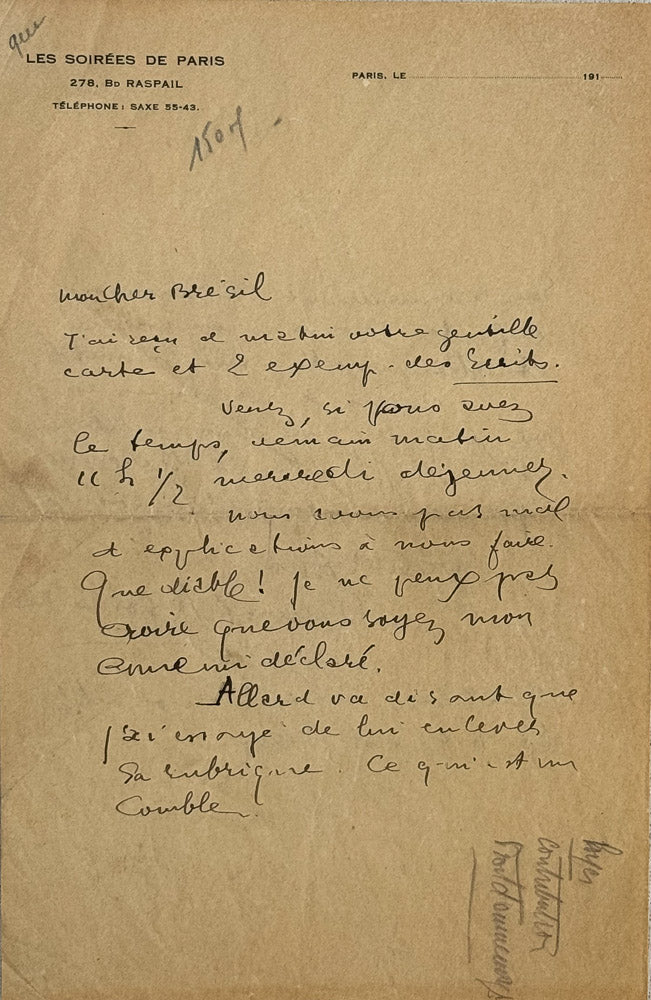 LES SOIRÉES DE PARIS
278, BD RASPAIL
TÉLÉPHONE : SAXE 55-43.
PARIS, LE 191
150 f
Mon Cher Brésil
J'ai reçu ce matin votre gentille
carte et 2 exemp. des Ecrits.
Venez, si vous avez
le temps, demain matin
11 h 1/2 mercredi déjeuner.
nous avons pas mal
d'explications à nous faire.
Que diable ! je ne peux pas
croire que vous soyez mon
ennemi déclaré.
Allard va disant que
j'ai essayé de lui enlever
sa rubrique. Ce qui est un
Comble.
Payer
contribution